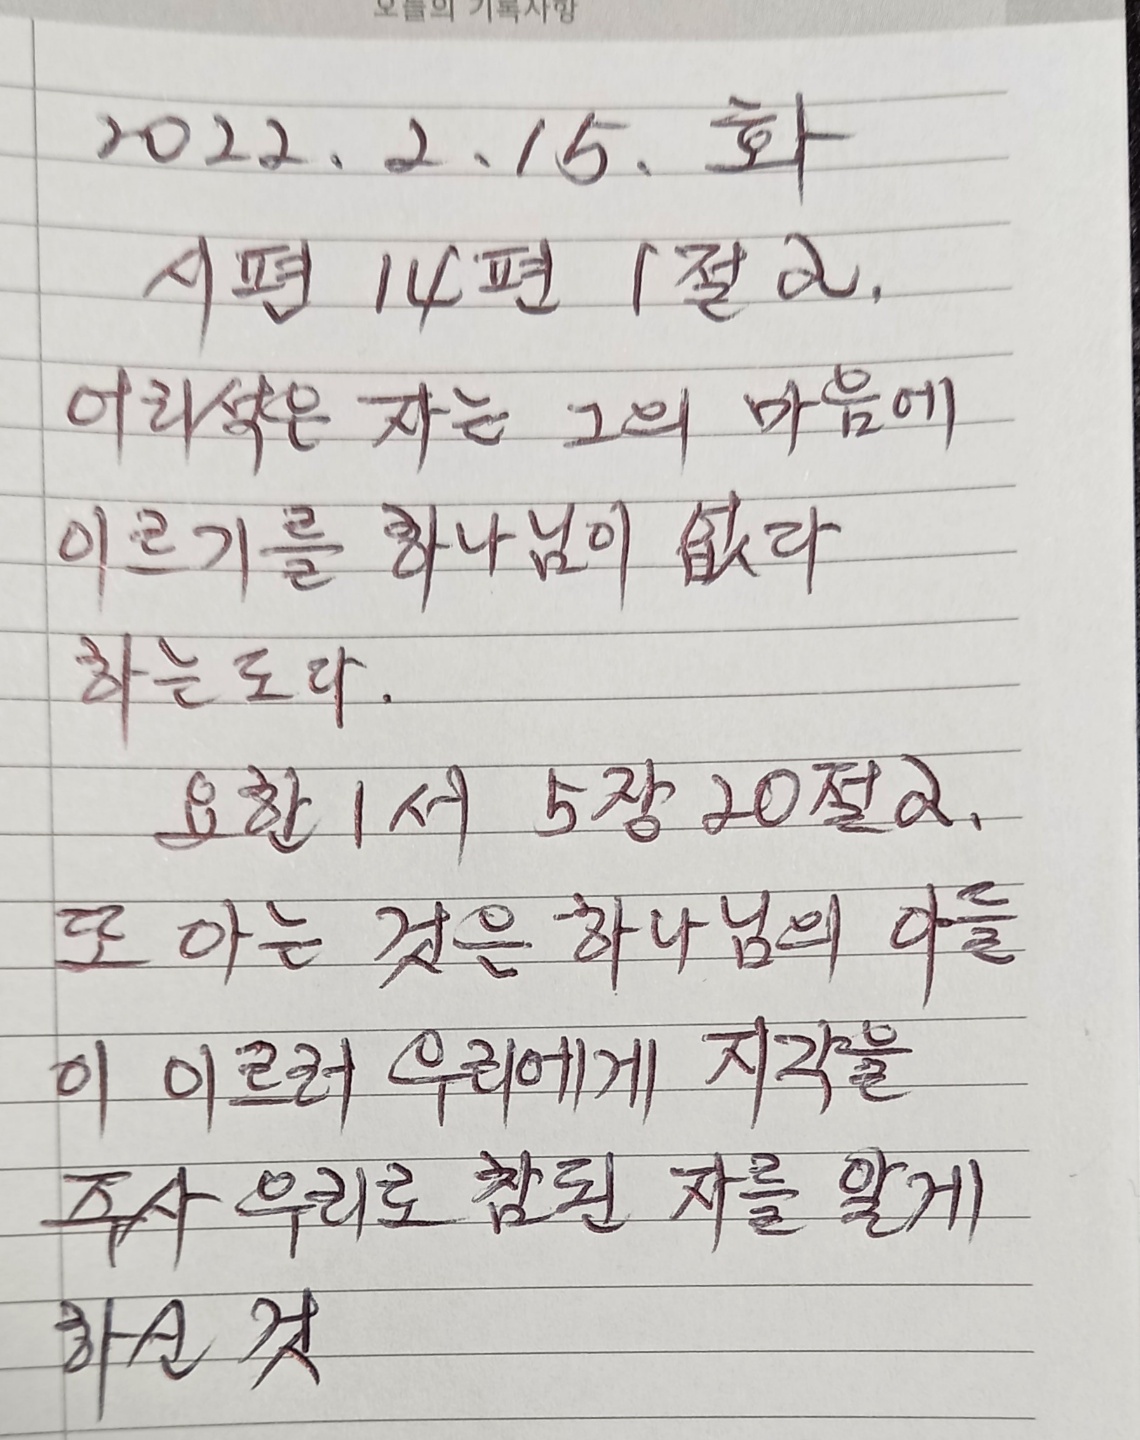 오늘의 기록사항
2022. 2. 15. 화
시편 14편 1절 2.
어리석은 자는 그의 마음에
이르기를 하나님이 없다
하는도다.
요한1서 5장 20절 2.
또 아는 것은 하나님의 아들
이 이르러 우리에게 지각을
주사 우리로 참된 자를 알게
하신 것